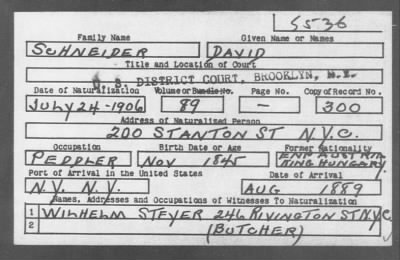 S536
Family Name Given Name or Names
SCHNEIDER DAVID
Title and Location of Court
U. S. DISTRICT COURT, BROOKLYN, N.Y.
Date of Naturalization Volume or Bundle No. Page No. Copy of Record No.
JULY 24-1906 89 - 300
Address of Naturalized Person
200 STANTON ST N.Y.C.
Occupation Birth Date or Age Former Nationality
PEDDLER NOV 1845 EMP AUSTRIA
KING HUNGARY
Port of Arrival in the United States Date of Arrival
N.Y. N.Y. AUG 1889
Names, Addresses and Occupations of Witnesses To Naturalization
1 WILHELM STEYER 246 RIVINGTON ST N.Y.C
2 (BUTCHER)